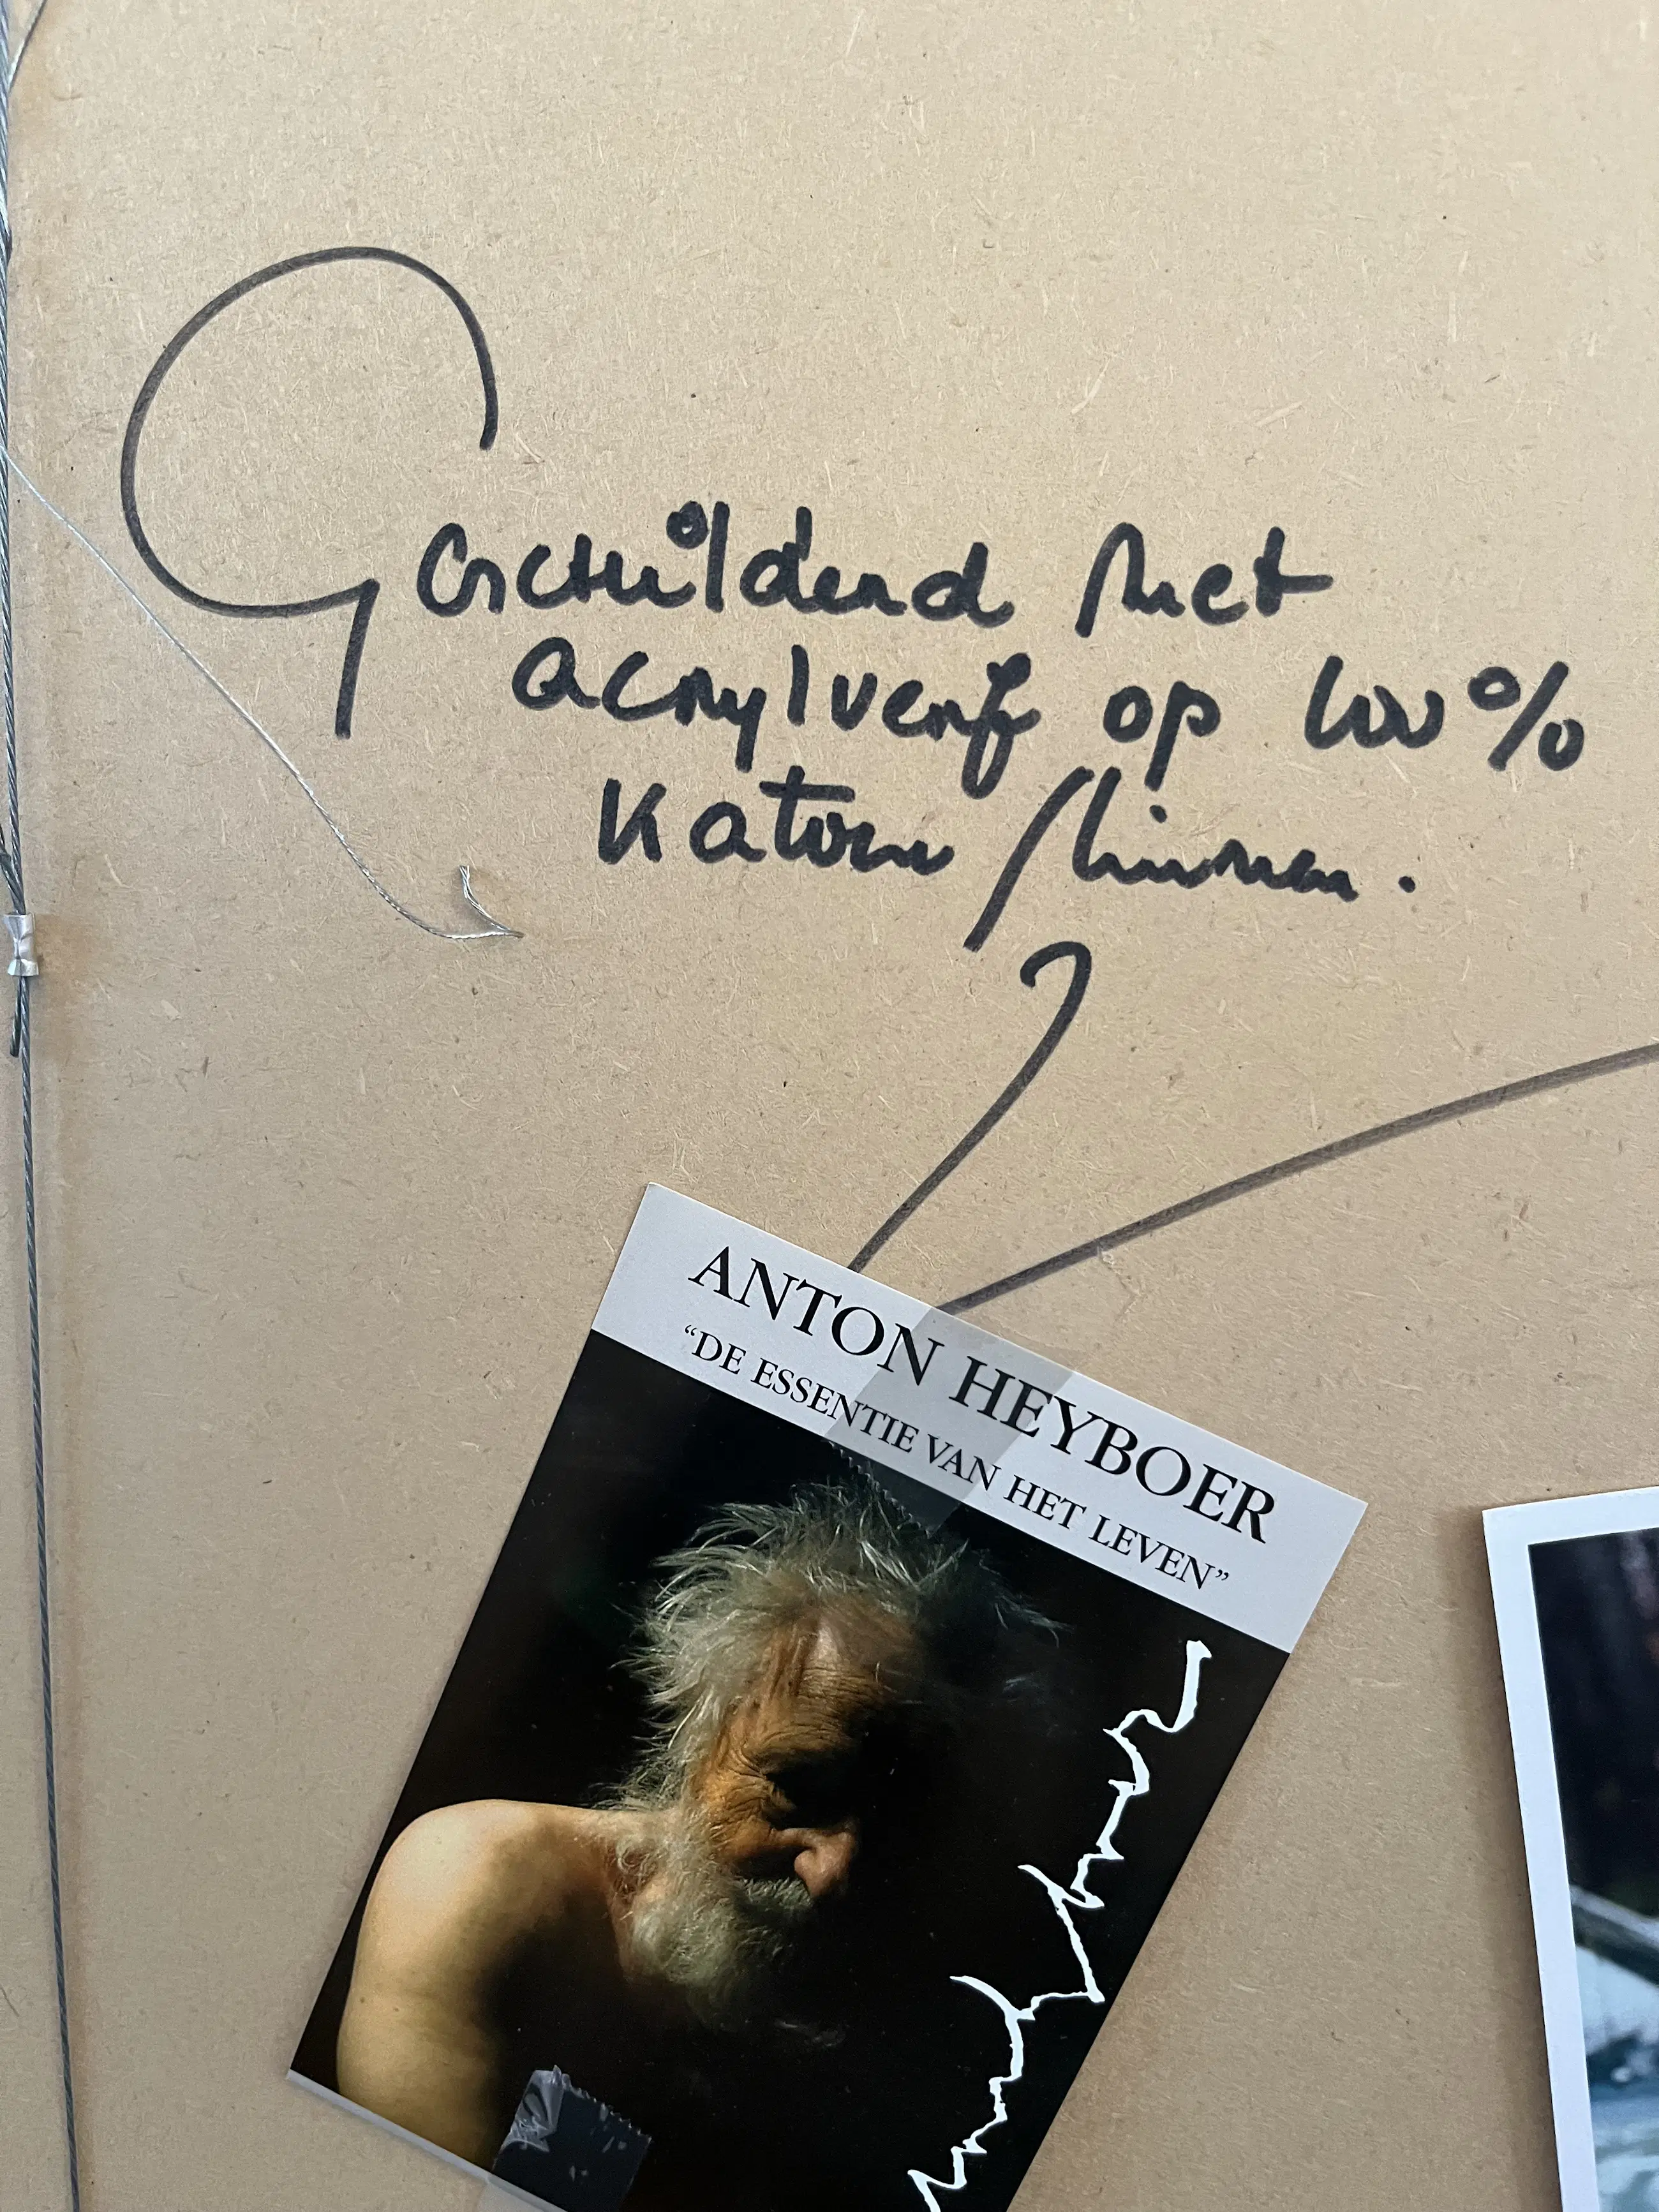 Geschilderd met
acrylverf op 100%
Katoen / linnen.
ANTON HEYBOER
“DE ESSENTIE VAN HET LEVEN”